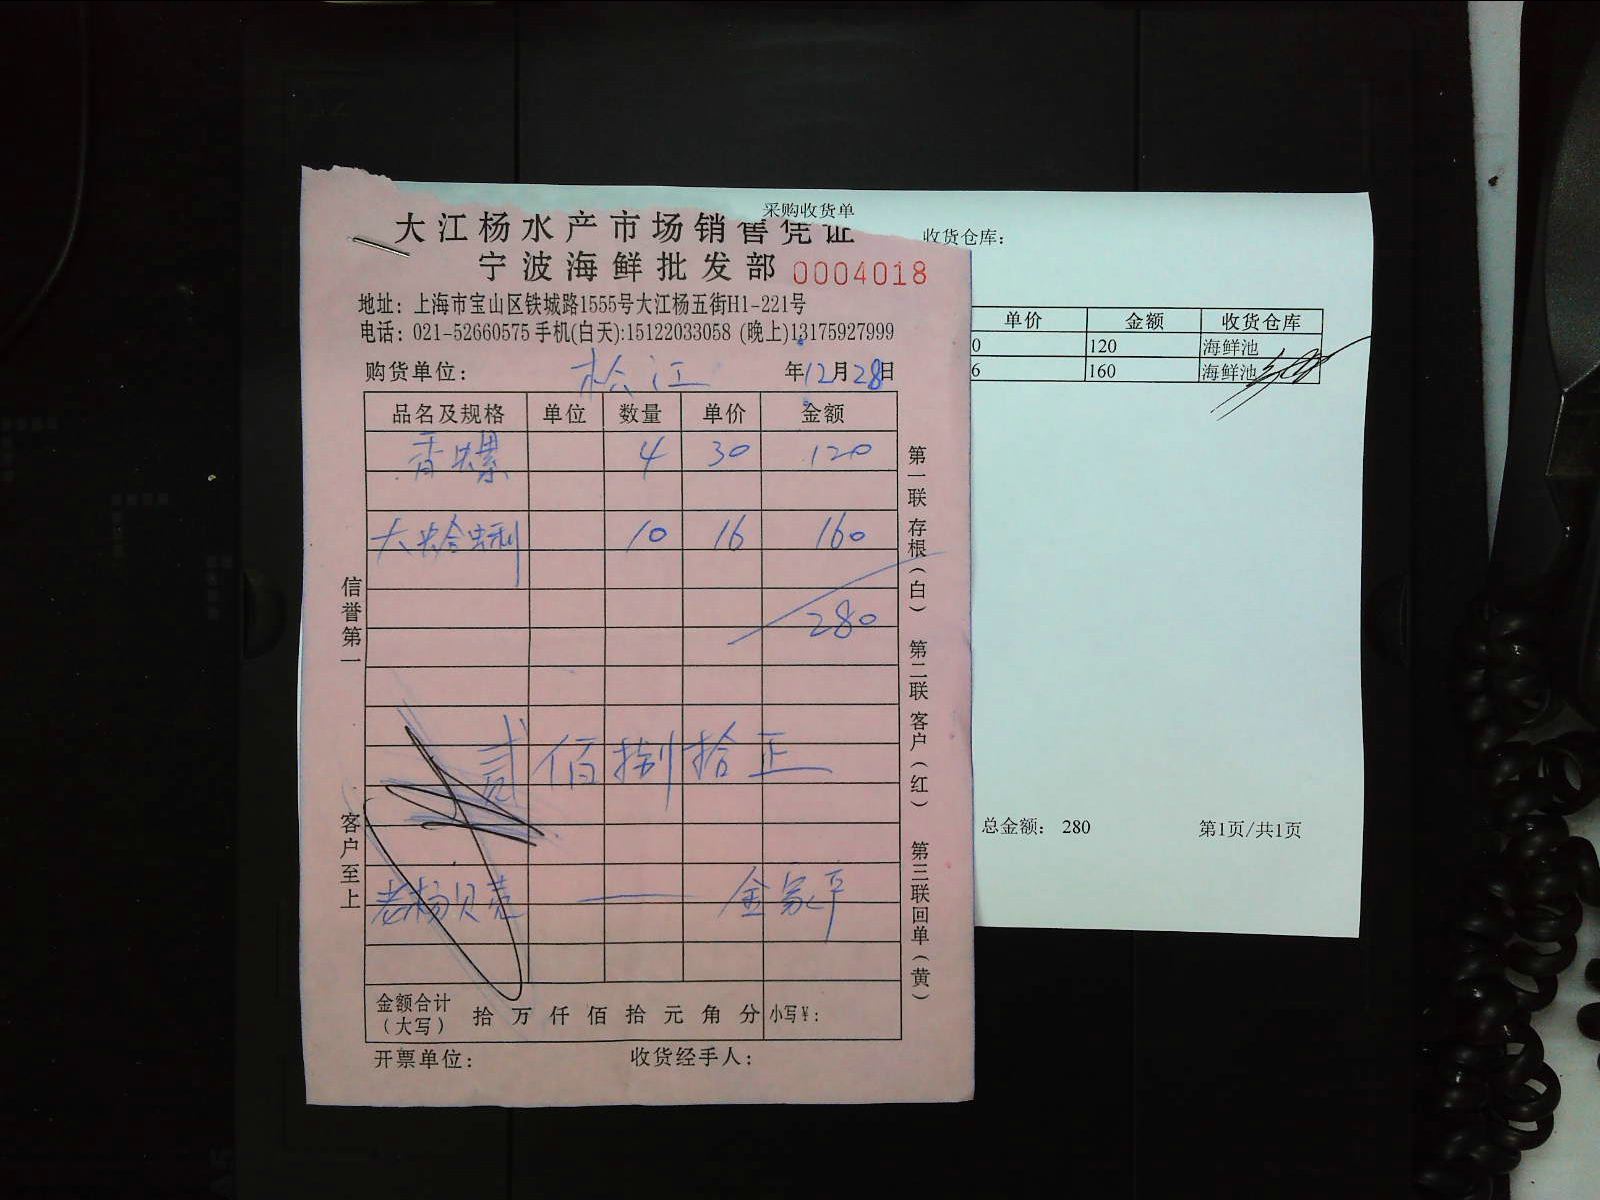 采购收货单
大江杨水产市场销售凭证
收货仓库：
宁波海鲜批发部 0004018
地址：上海市宝山区铁城路1555号大江杨五街H1-221号
电话：021-52660575 手机(白天):15122033058 (晚上)13175927999
购货单位： 松江 年12月28日
品名及规格 单位 数量 单价 金额
香螺 4 30 120
大蛤蜊 10 16 160
280
贰佰捌拾正
老杨贝壳 — 金家平
金额合计（大写） 拾 万 仟 佰 拾 元 角 分 小写￥：
开票单位： 收货经手人：
信誉第一
客户至上
第一联存根（白）
第二联客户（红）
第三联回单（黄）
单价 金额 收货仓库
0 120 海鲜池
6 160 海鲜池
总金额： 280 第1页/共1页